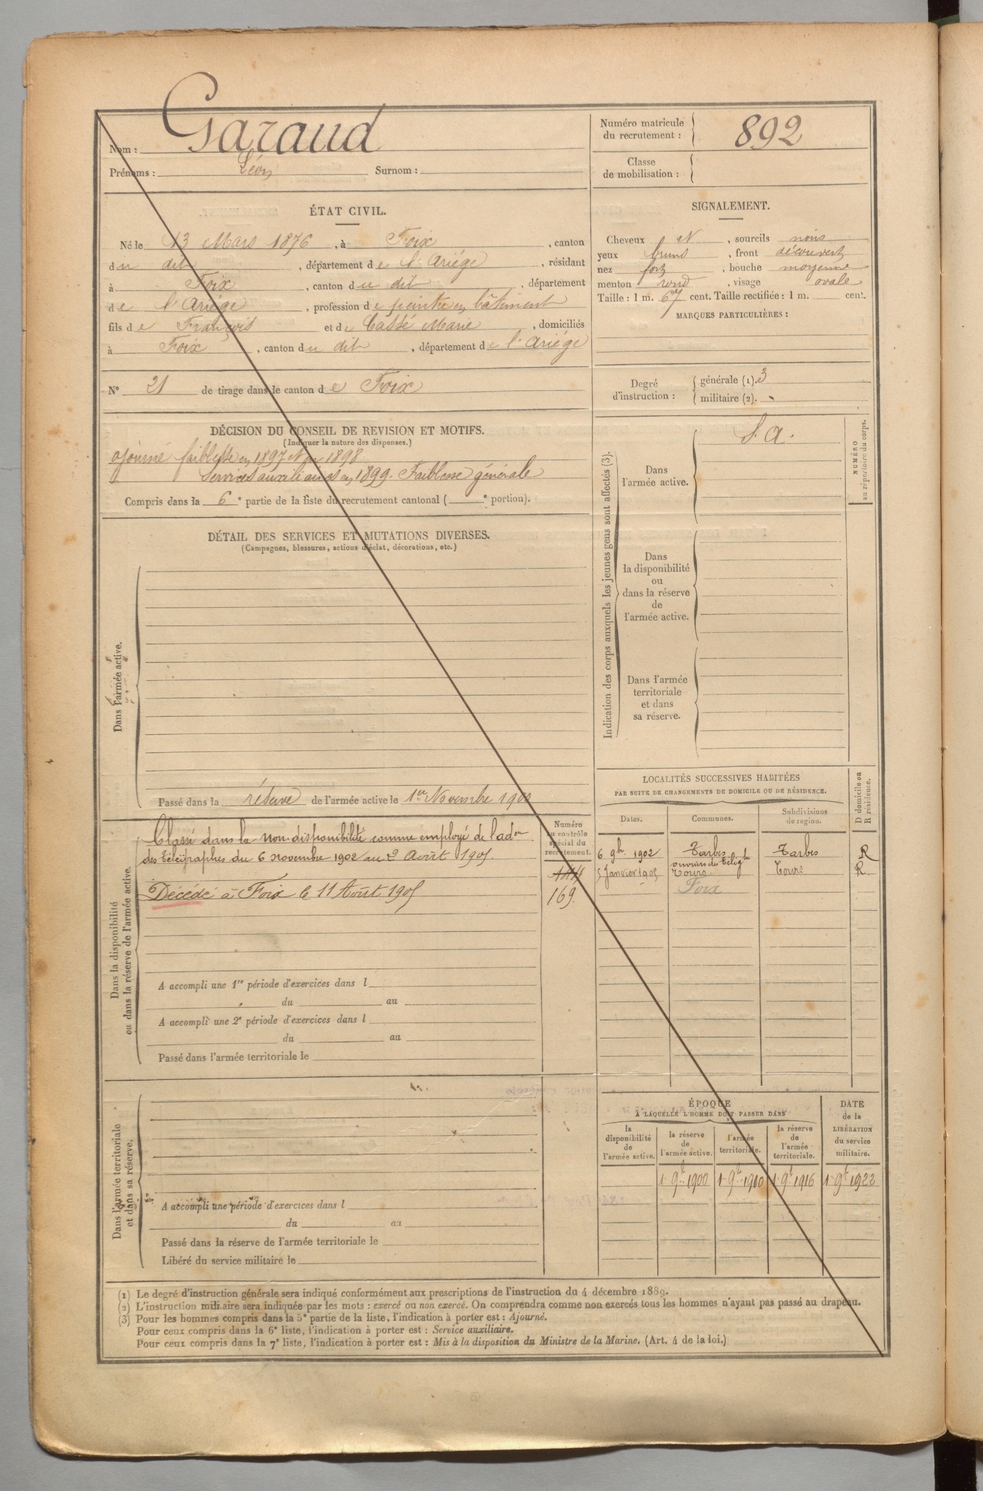 Nom : Garaud
Prénoms : Léon Surnom :
Numéro matricule du recrutement : 892
Classe de mobilisation :
ÉTAT CIVIL.
Né le 13 Mars 1876, à Foix, canton
du dit, département de l'Ariège, résidant
à Foix, canton du dit, département
de l'Ariège, profession de peintre en bâtiment
fils de François et de Cassé Marie, domiciliés
à Foix, canton du dit, département de l'Ariège
N° 21 de tirage dans le canton de Foix
SIGNALEMENT.
Cheveux N, sourcils noirs
yeux bruns, front découvert
nez fort, bouche moyenne
menton rond, visage ovale
Taille : 1 m. 67 cent. Taille rectifiée : 1 m. cent.
MARQUES PARTICULIÈRES :
Degré d'instruction : générale (1). 3
militaire (2).
DÉCISION DU CONSEIL DE REVISION ET MOTIFS.
(Indiquer la nature des dispenses.)
ajourné faiblesse en 1897 et en 1898
Services auxiliaires en 1899. Faiblesse générale
Compris dans la 6e partie de la liste du recrutement cantonal ( e portion).
DÉTAIL DES SERVICES ET MUTATIONS DIVERSES.
(Campagnes, blessures, actions d'éclat, décorations, etc.)
Dans l'armée active.
Passé dans la réserve de l'armée active le 1er Novembre 1900
Indication des corps auxquels les jeunes gens sont affectés (3).
NUMÉRO au répertoire du corps.
Dans l'armée active.
S. A.
Dans la disponibilité ou dans la réserve de l'armée active.
Dans l'armée territoriale et dans sa réserve.
Dans la disponibilité ou dans la réserve de l'armée active.
Classé dans la non-disponibilité comme employé de l'adon
des télégraphes du 6 novembre 1902 au 9 Août 1905.
Décédé à Foix le 11 Août 1905
Numéro au contrôle spécial du recrutement.
169
A accompli une 1re période d'exercices dans l
du au
A accompli une 2e période d'exercices dans l
du au
Passé dans l'armée territoriale le
LOCALITÉS SUCCESSIVES HABITÉES
PAR SUITE DE CHANGEMENTS DE DOMICILE OU DE RÉSIDENCE.
Dates. Communes. Subdivisions de région. D domicile ou R résidence.
6 9bre 1902 Tarbes Tarbes R
ouvrier du télégh
5 Janvier 1905 Tours Tours R.
Foix
Dans l'armée territoriale et dans sa réserve.
A accompli une période d'exercices dans l
du au
Passé dans la réserve de l'armée territoriale le
Libéré du service militaire le
ÉPOQUE
À LAQUELLE L'HOMME DOIT PASSER DANS
la disponibilité de l'armée active. la réserve de l'armée active. l'armée territoriale. la réserve de l'armée territoriale.
DATE de la LIBÉRATION du service militaire.
1 9bre 1900 1 9bre 1910 1 9bre 1916 1 9bre 1922
(1) Le degré d'instruction générale sera indiqué conformément aux prescriptions de l'instruction du 4 décembre 1889.
(2) L'instruction militaire sera indiquée par les mots : exercé ou non exercé. On comprendra comme non exercés tous les hommes n'ayant pas passé au drapeau.
(3) Pour les hommes compris dans la 5e partie de la liste, l'indication à porter est : Ajourné.
Pour ceux compris dans la 6e liste, l'indication à porter est : Service auxiliaire.
Pour ceux compris dans la 7e liste, l'indication à porter est : Mis à la disposition du Ministre de la Marine. (Art. 4 de la loi.)